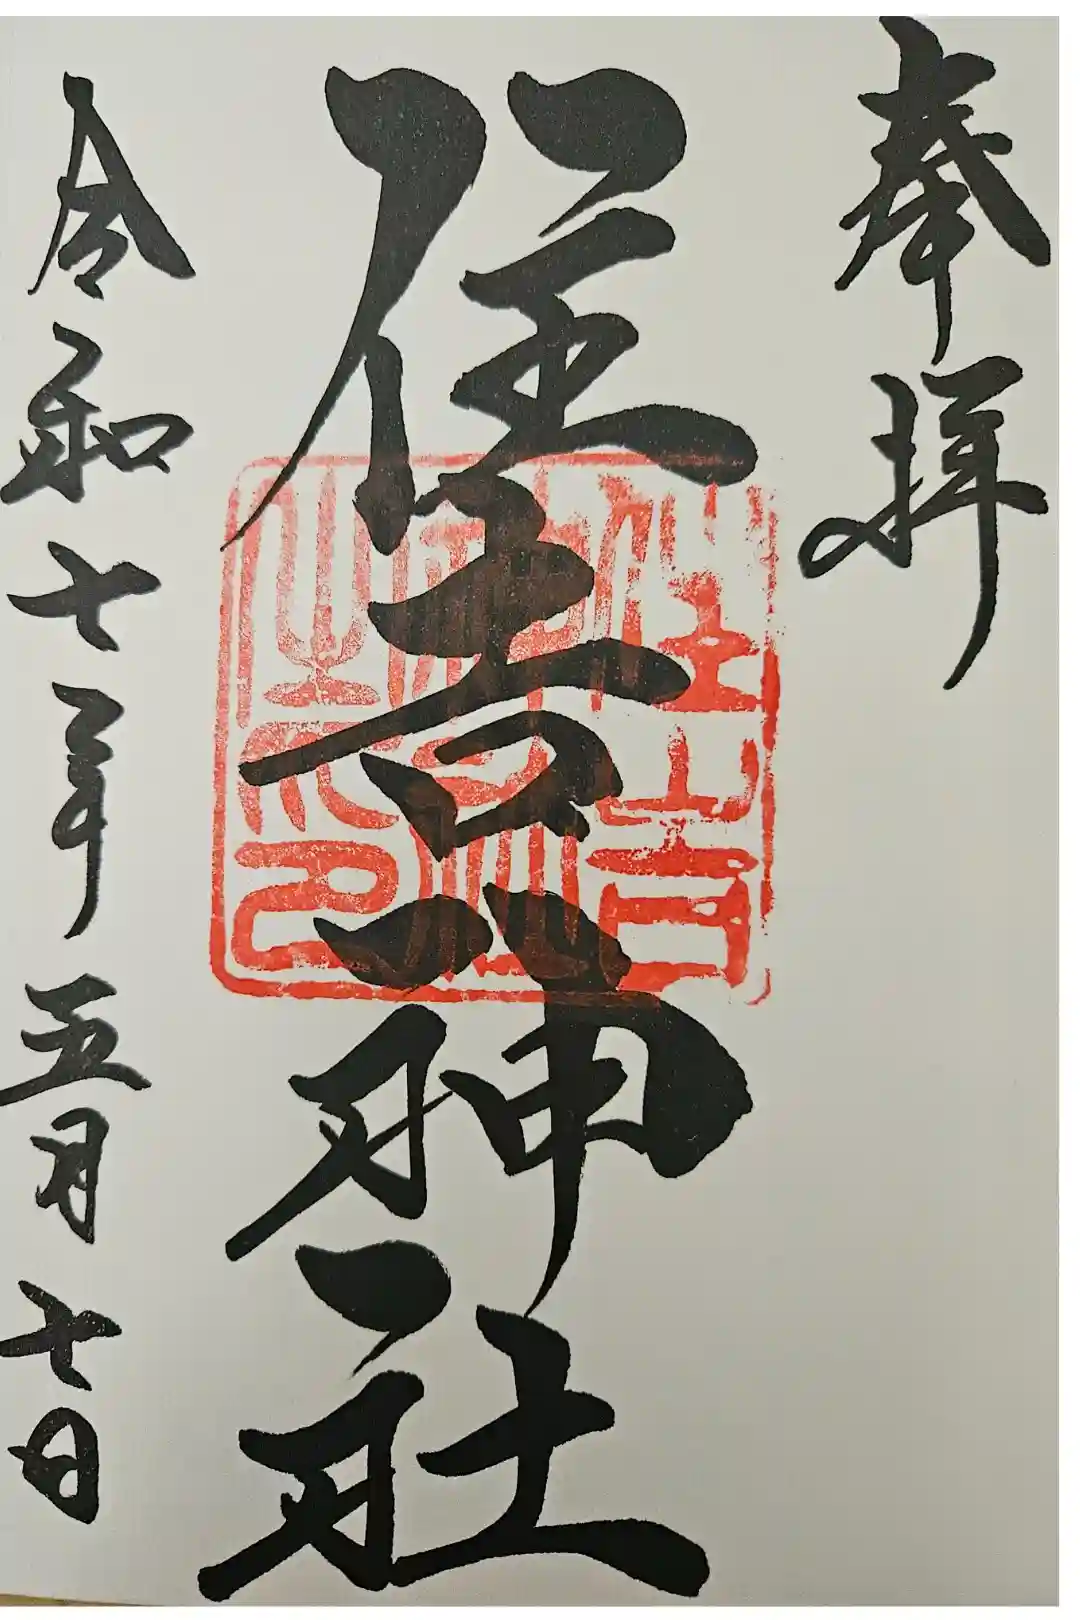 奉拝
住吉神社
住吉神社之印
令和七年五月七日